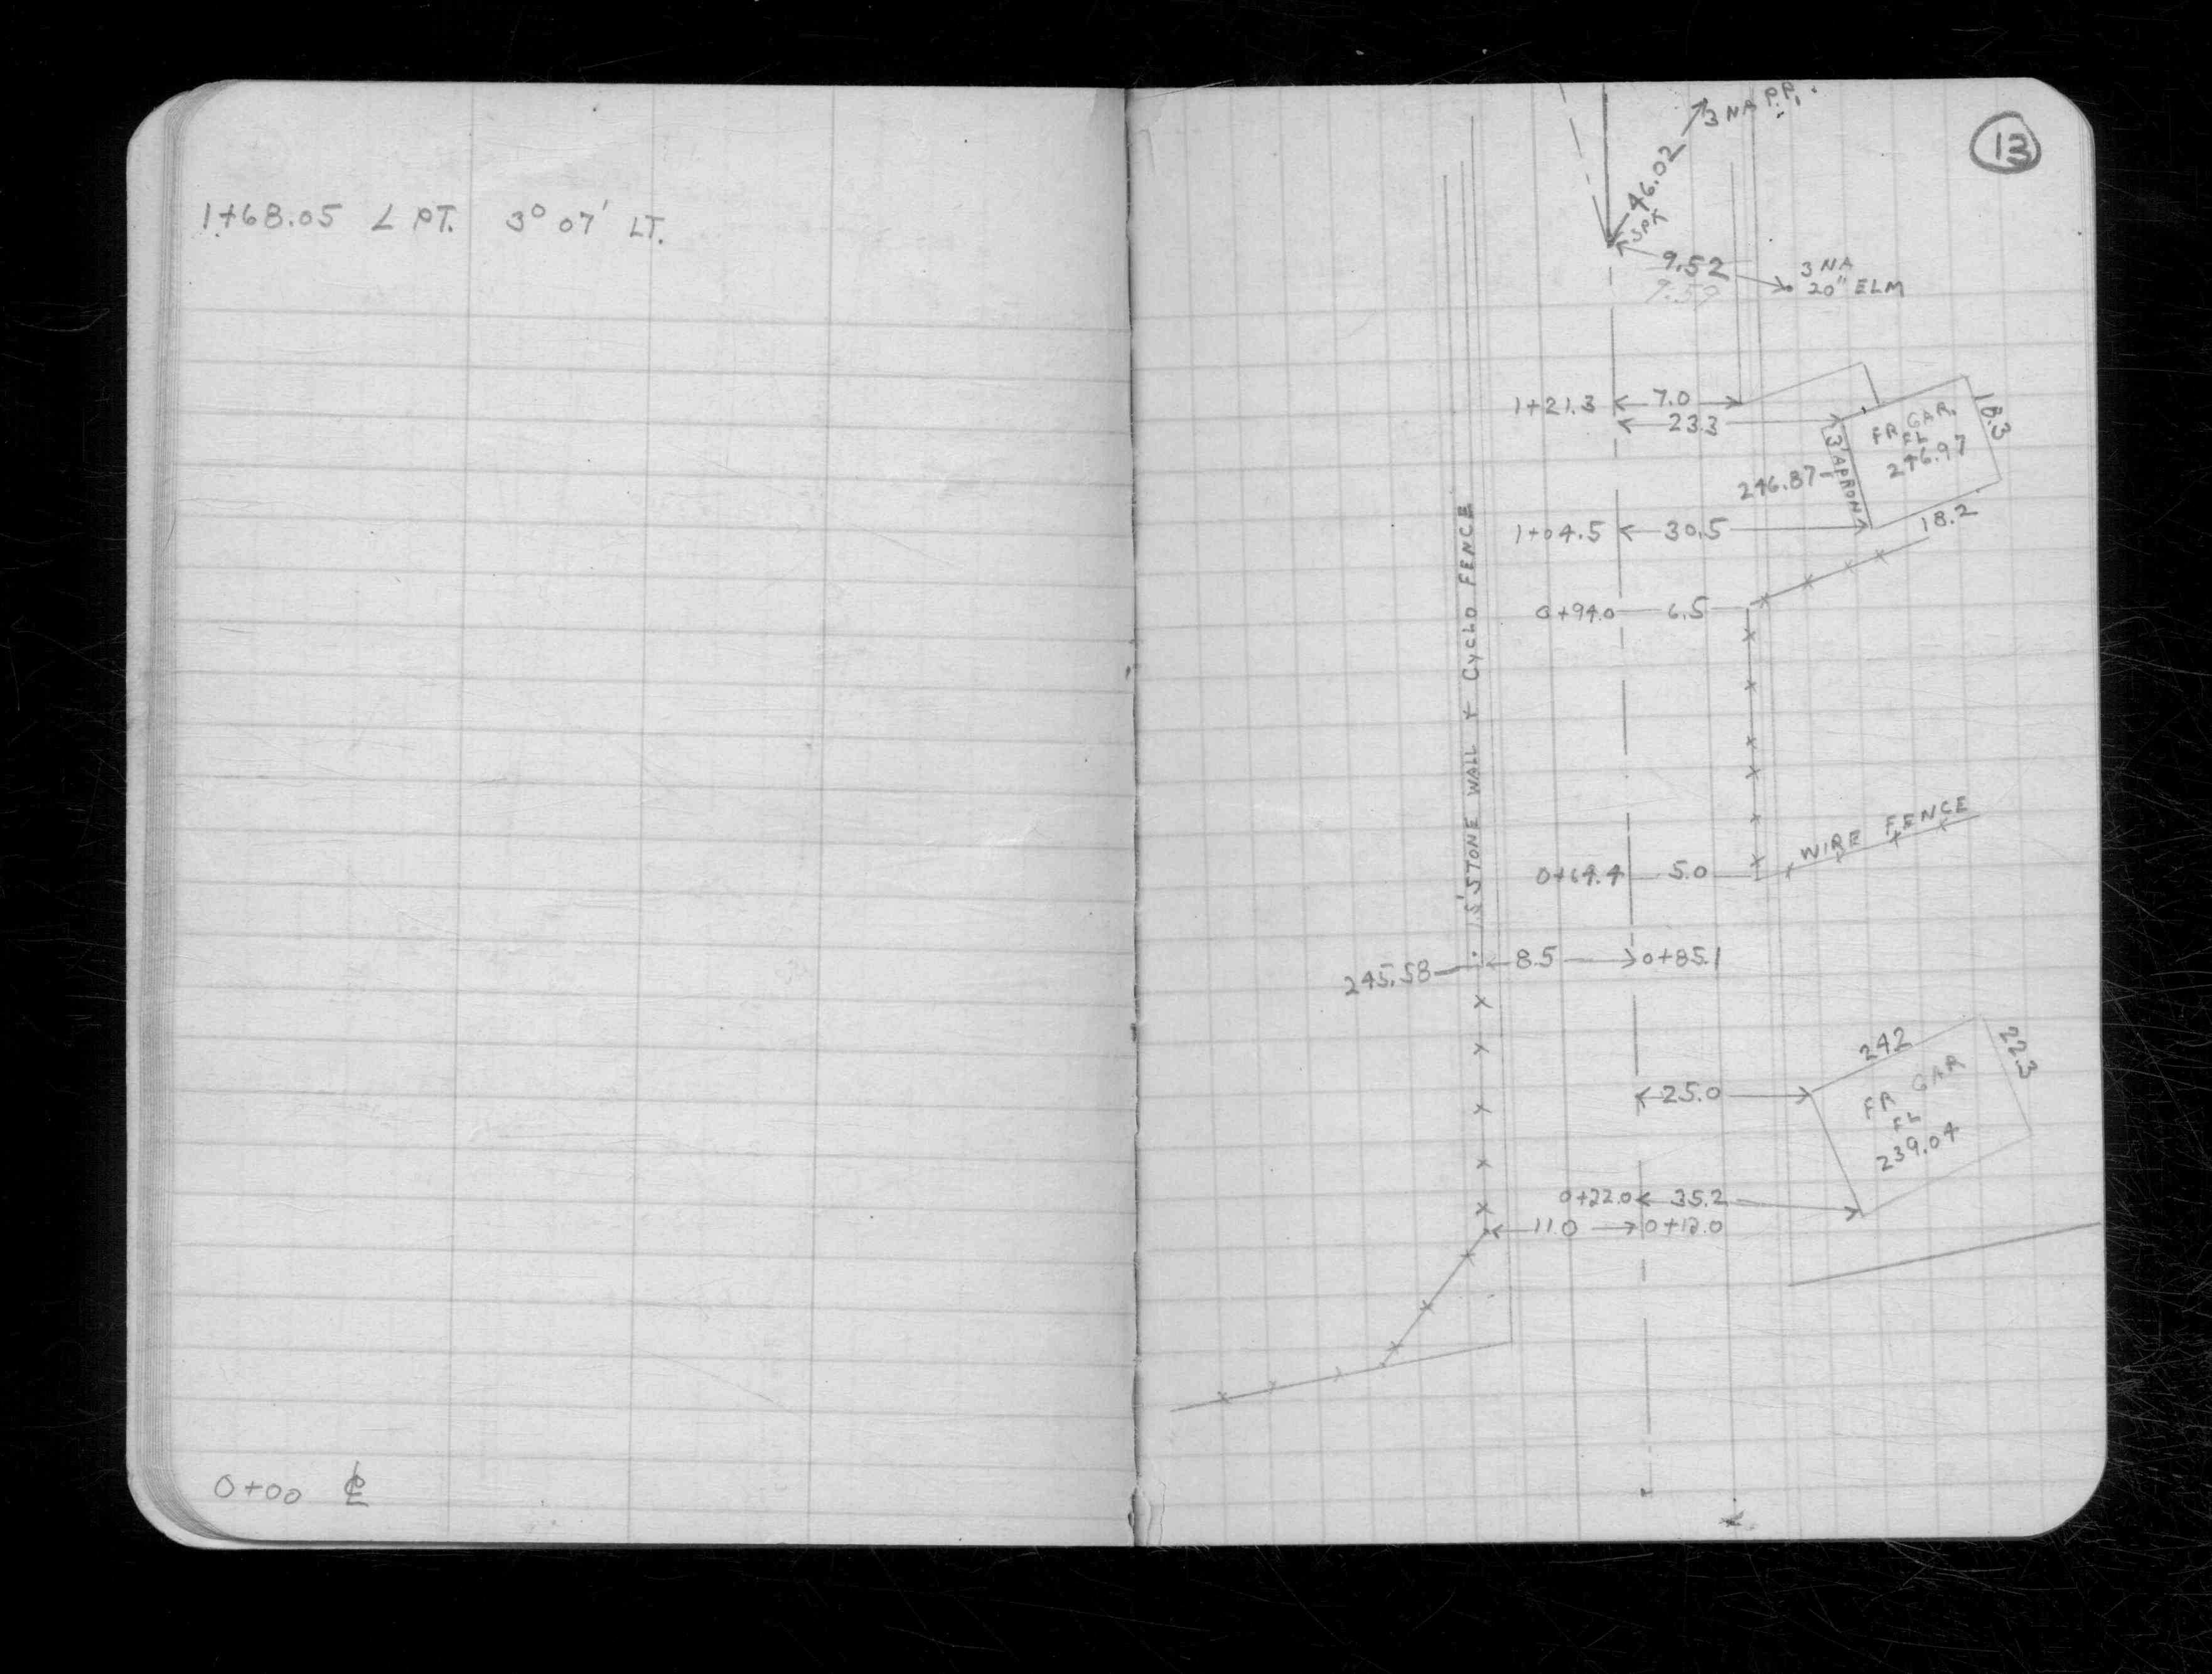 1+68.05 ∠ PT. 3° 07' LT.
0+00 ℄
13
3 NA P.P.
46.02
SPK
9.52
9.59
3 NA
20" ELM
1+21.3 7.0
23.3
18.3
FR GAR.
FL
246.97
3' APRON
246.87
1+04.5 30.5
18.2
0+94.0 6.5
1.5' STONE WALL + CYCLO FENCE
WIRE FENCE
0+64.4 5.0
245.58 8.5 0+85.1
242
22.3
25.0
FR GAR
FL
239.04
0+22.0 35.2
11.0 0+12.0